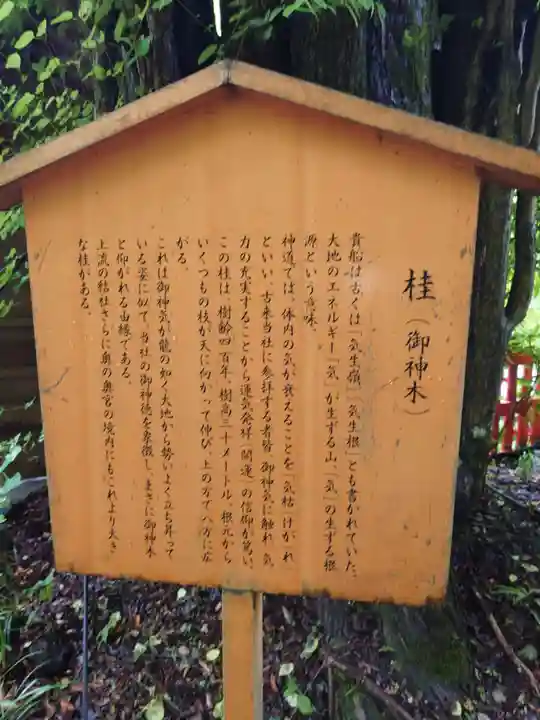 桂（御神木）
貴船は古くは「気生嶺」「気生根」とも書かれていた。
大地のエネルギー「気」が生ずる山、「気」の生ずる根
源という意味。
神道では、体内の気が衰えることを「気枯」けがれ
といい、古来当社に参拝する者皆、御神気に触れ、気
力の充実することから運気発祥（開運）の信仰が篤い。
この桂は、樹齢四百年、樹高三十メートル、根元から
いくつもの枝が天に向かって伸び、上の方で八方に広
がる。
これは御神気が龍の如く大地から勢いよく立ち昇って
いる姿に似て、当社の御神徳を象徴し、まさに御神木
と仰がれる由縁である。
上流の結社さらに奥の奥宮の境内にもこれより大き
な桂がある。